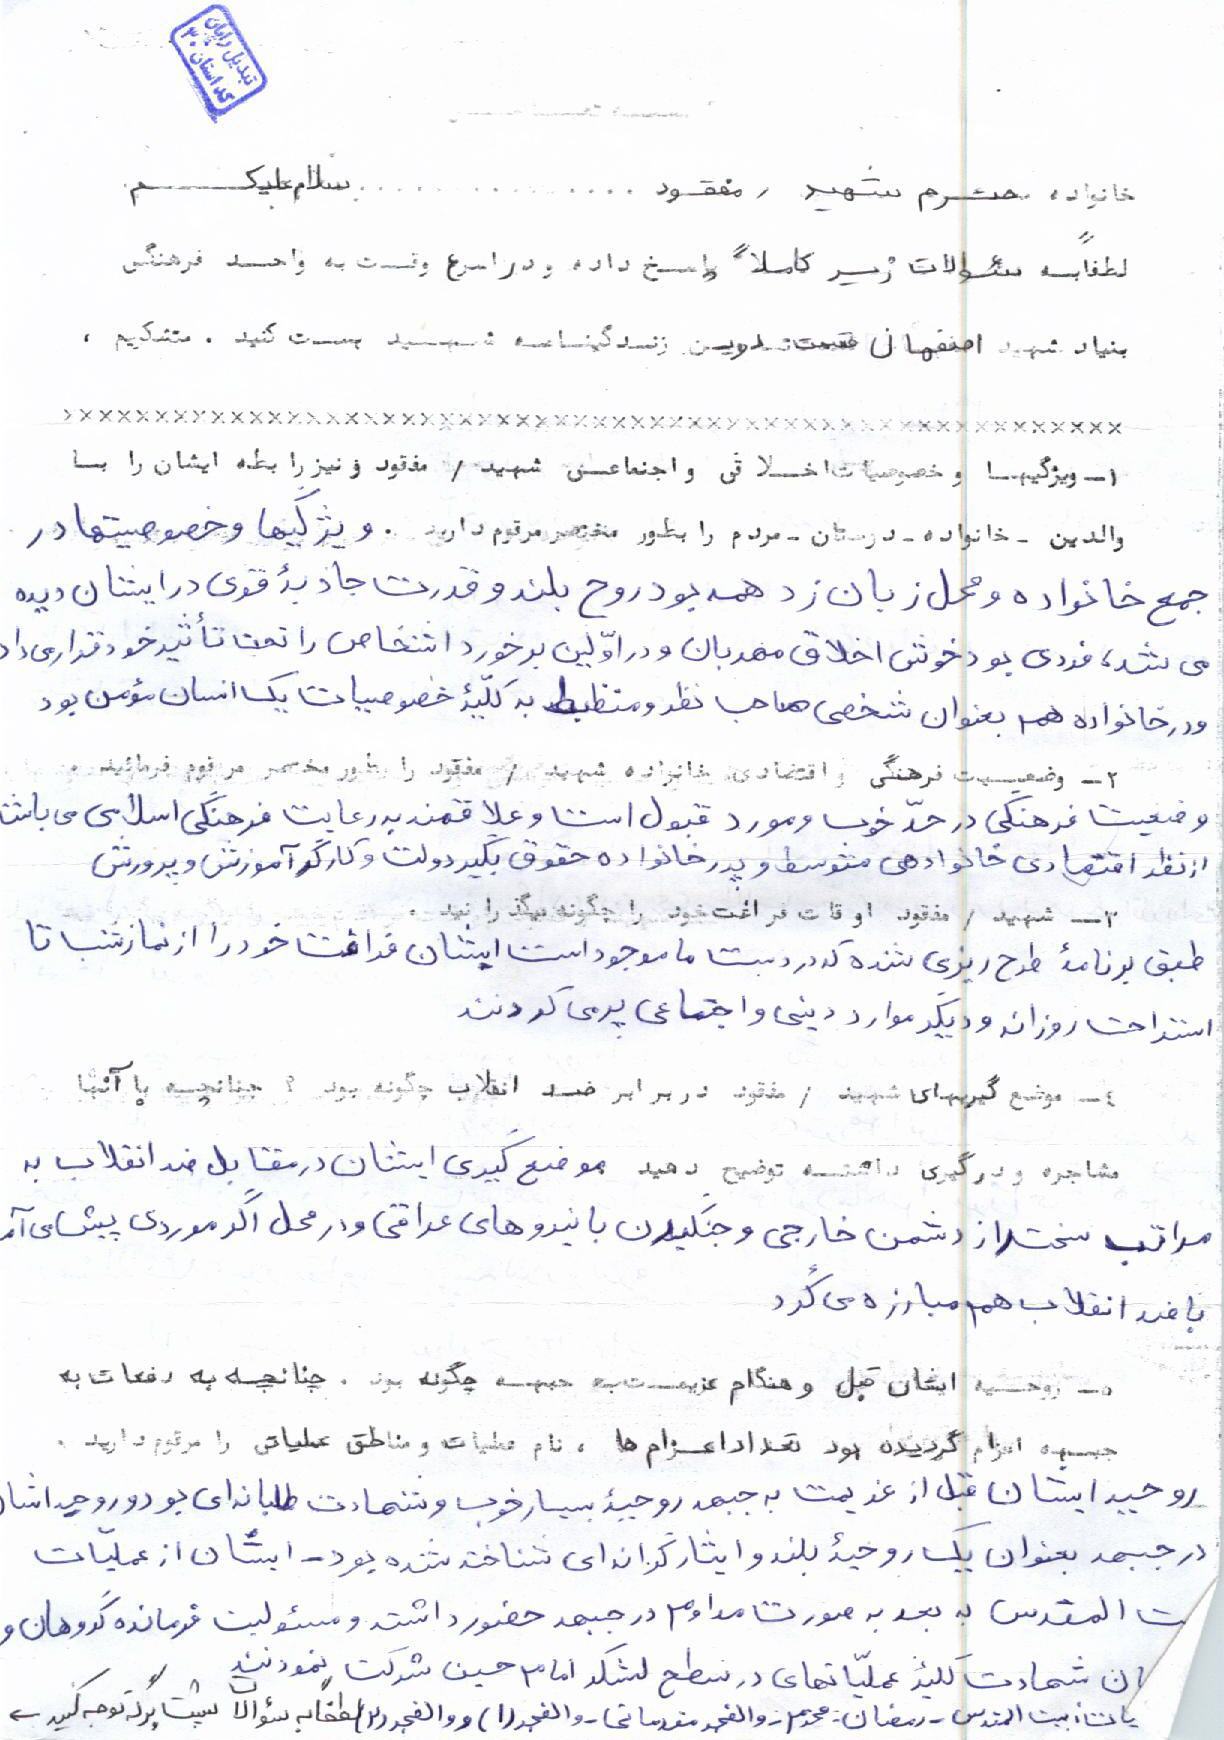 تبدیل رایان
کد استان ۳۰
خانواده محترم شهید / مفقود ............... سلام علیکم
لطفاً به سئوالات زیر کاملاً پاسخ داده و در اسرع وقت به واحد فرهنگی
بنیاد شهید اصفهان قسمت تدوین زندگینامه شهید پست کنید . متشکریم ،
××××××××××××××××××××××××××××××××××××××××××××××××××
۱ـ ویژگیها و خصوصیات اخلاقی و اجتماعی شهید / مفقود و نیز رابطه ایشان را با
والدین ـ خانواده ـ دوستان ـ مردم را بطور مختصر مرقوم دارید . ویژگیها و خصوصیتها در
جمع خانواده و محل زبان زد همه بود روح بلند و قدرت جاذبهٔ قوی در ایشان دیده
می شد، فردی بود خوش اخلاق مهربان و در اوّلین برخورد اشخاص را تحت تأثیر خود قرار می داد
و در خانواده هم بعنوان شخصی صاحب نظر و منظبط به کلّیهٔ خصوصیات یک انسان مؤمن بود
۲ـ وضعیت فرهنگی و اقتصادی خانواده شهید / مفقود را بطور مختصر مرقوم فرمائید
وضعیت فرهنگی در حدّ خوب و مورد قبول است و علاقمند به رعایت فرهنگی اسلامی می باشد
از نظر اقتصادی خانواده‌ی متوسط و پدر خانواده حقوق بگیر دولت و کارگر آموزش و پرورش
۳ـ شهید / مفقود اوقات فراغت خود را چگونه میگذرانید .
طبق برنامهٔ طرح ریزی شده که در دست ما موجود است ایشان فراغت خود را از نماز شب تا
استراحت روزانه و دیگر موارد دینی و اجتماعی پر می کردند
٤ـ موضع گیریهای شهید / مفقود در برابر ضد انقلاب چگونه بود ؟ چنانچه با آنها
مشاجره و درگیری داشته توضیح دهید موضع گیری ایشان در مقابل ضد انقلاب به
مراتب سخت‌تر از دشمن خارجی و جنگیدن با نیروهای عراقی و در محل اگر موردی پیش می آمد
با ضد انقلاب هم مبارزه می کرد
۵ـ روحیه ایشان قبل و هنگام عزیمت به جبهه چگونه بود . چنانچه به دفعات به
جبهه اعزام گردیده بود تعداد اعزام ها ، نام عملیات و مناطق عملیاتی را مرقوم دارید .
روحیه ایشان قبل از عزیمت به جبهه روحیهٔ بسیار خوب و شهادت طلبانه‌ای بود و روحیه اشان
در جبهه بعنوان یک روحیهٔ بلند و ایثارگرانه‌ای شناخته شده بود ـ ایشان از عملیّات
ت المقدس به بعد به صورت مداوم در جبهه حضور داشته و مسئولیت فرمانده گروهان و
ان شهادت کلیّهٔ عملیّاتهای در سطح لشکر امام حسین شرکت نمودند
یات: بیت المقدس ـ رمضان ـ محرم ـ والفجر مقدماتی ـ والفجر (۱) و والفجر (۲) لطفاً به سؤالات پشت برگه توجه کنید ←